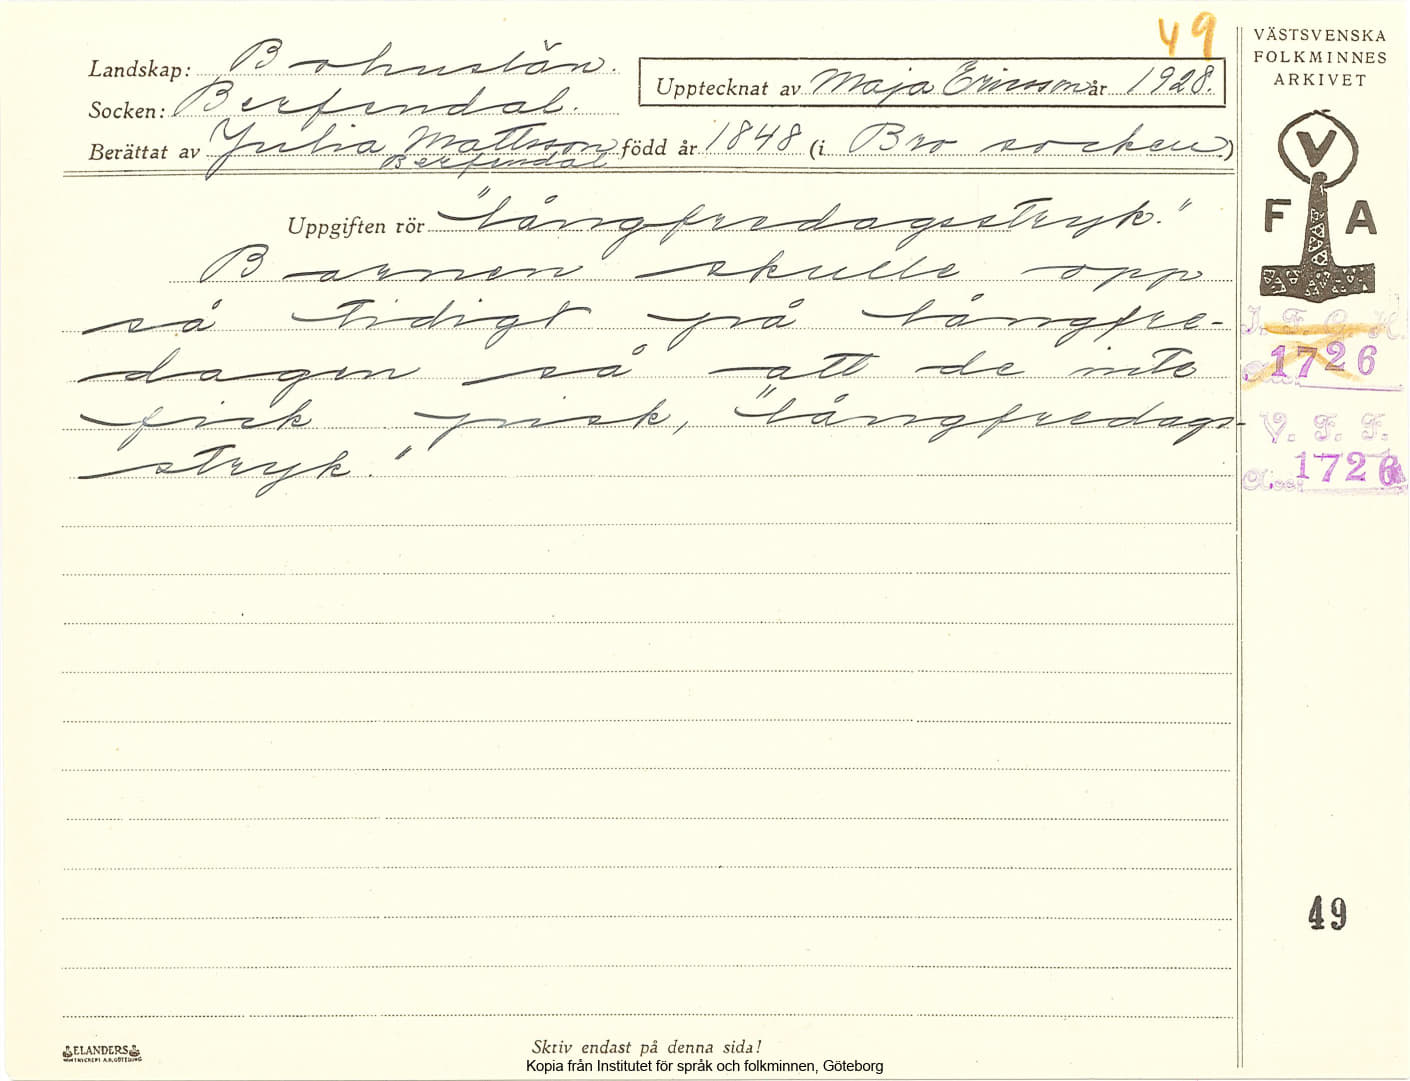 49
Landskap: Bohuslän.
Socken: Berfendal.
Upptecknat av Maja Ericsson år 1928.
Berättat av Julia Mattsson född år 1848 (i Bro socken)
Berfendal
Uppgiften rör "långfredagsstryk."
Barnen skulle opp
så tidigt på långfre-
dagen så att de inte
fick pisk, "långfredags-
stryk."
VÄSTSVENSKA
FOLKMINNES
ARKIVET
V
F A
I. F. G. H.
Acc. 1726
V. F. F.
Acc. 1726
49
ELANDERS
Skriv endast på denna sida!
Kopia från Institutet för språk och folkminnen, Göteborg